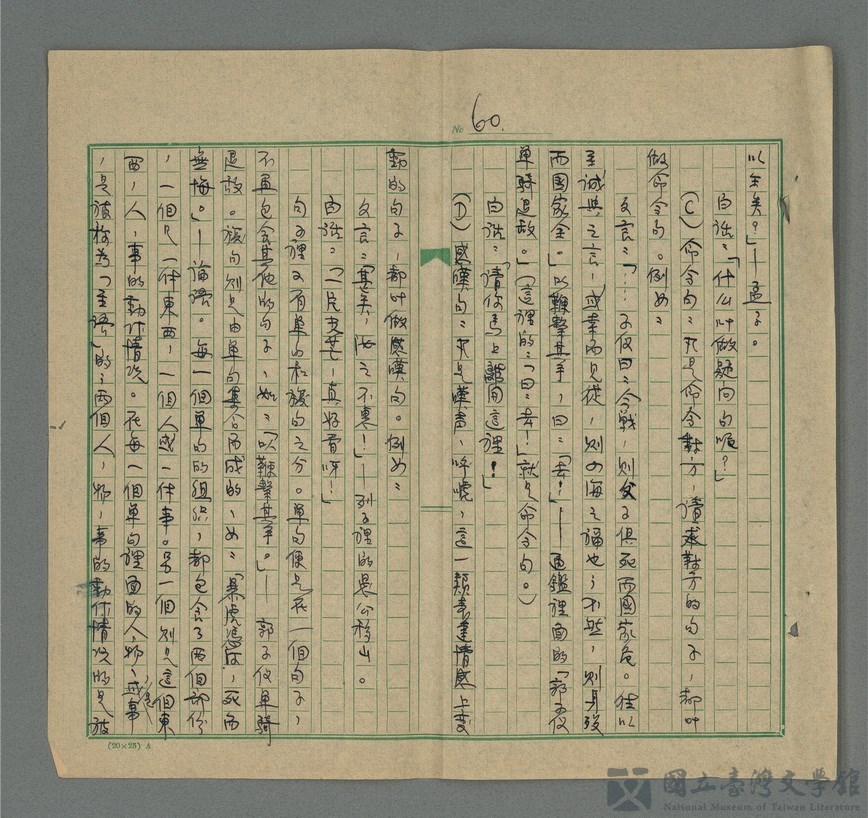 No 60.
以至矣?」—孟子。
白話:「什么叫做疑問句呢?」
(C)命令句:就是命令對方,請求對方的句子,都叫
做命令句。例如:
文言:「…子仪曰:今戰,則父子俱死而國家危。往以
至誠與之言,或幸而見從,則四海之福也;不然,則身歿
而國家全。」以鞭擊其手,曰:「去!」——通鑑裡面的「郭子仪
單騎退敌。」(這裡的:「曰:去!」就是命令句。)
白話:「請你馬上離開這裡!」
(D)感嘆句:就是嘆声,呼唬,這一類表達情感上变
動的句子,都叫做感嘆句。例如:
文言:「甚矣,汝之不惠!」—列子裡的愚公移山。
白話:「一片支芒,真好看呀!」
句子裡又有單句和複句之分。單句便是在一個句子,
不再包含其他的句子,如:「以鞭擊其手。」——郭子仪單騎
退敌。複句則是由單句集合而成的,如:「暴虎馮河,死而
無悔。」—論語。每一個單句的組織,都包含了兩個部份
,一個是一件東西,一個人或一件事。另一個則是這個東
西,人,事的動作情况。在每一個單句裡面的人,物,或事
,是被称為「主語」的;而個人,物,事的動作情况的是被
(20×25) A
國立臺灣文學館
National Museum of Taiwan Literature